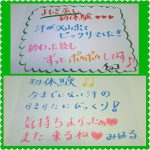 初体験
汗が沢山出て
ビックリでした!!
終わった後も
ずっとポカポカします♪
初体験♪♪
今までにない汗の
出かたにびっくり!
気持ちよかった〜
また来るね みはる